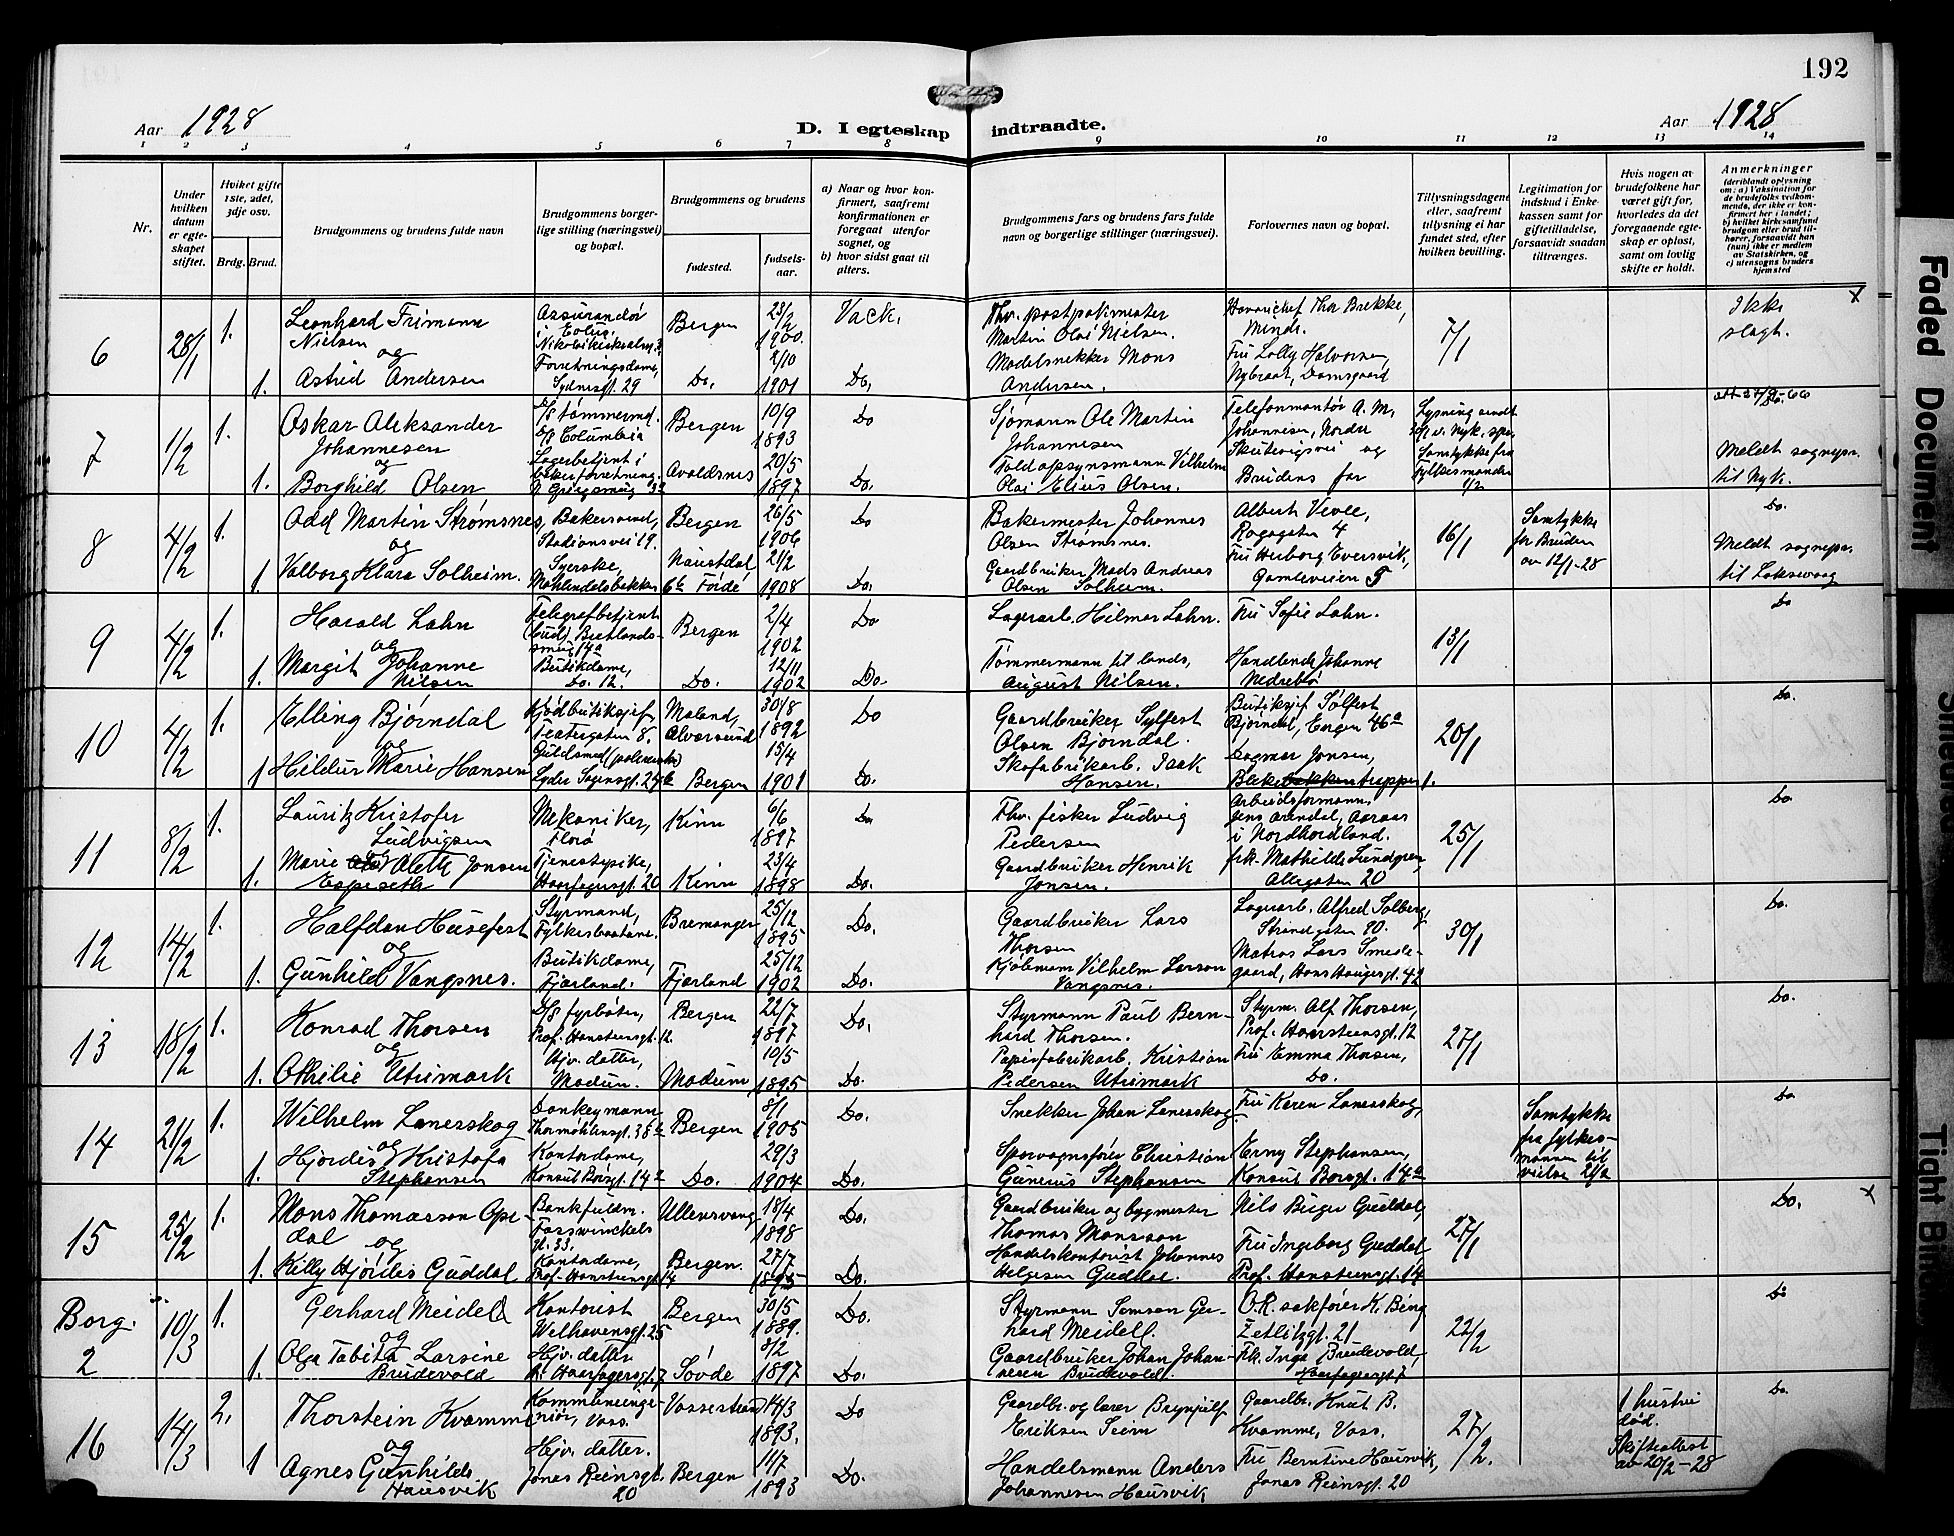 192
Aar 1928
D. I egteskap indtraadte.
Aar 1928
1 2 3 4 5 6 7 8 9 10 11 12 13 14
Nr.
Under hvilken datum er egteskapet stiftet.
Hviket gifte 1ste, 2det, 3dje osv.
Brdg. Brud.
Brudgommens og brudens fulde navn
Brudgommens borgerlige stilling (næringsvei) og bopæl.
Brudgommens og brudens
fødested.
fødselsaar.
a) Naar og hvor konfirmert, saafremt konfirmationen er foregaat utenfor sognet, og
b) hvor sidst gaat til alters.
Brudgommens fars og brudens fars fulde navn og borgerlige stillinger (næringsvei).
Forlovernes navn og bopæl.
Tillysningsdagene eller, saafremt tillysning ei har fundet sted, efter hvilken bevilling.
Legitimation for indskud i Enkekassen samt for giftetilladelse, forsaavidt saadan tiltrænges.
Hvis nogen av brudefolkene har været gift før, hvorledes da det foregaaende egteskap er opløst, samt om lovlig skifte er holdt.
Anmerkninger
(deriblandt oplysning om: a) Vaksination for de brudefolks vedkommende, der ikke er konfirmert her i landet; b) hvilket kirkesamfund brudgom eller brud tilhører, forsaavidt han (hun) ikke er medlem av Statskirken, og c) utensogns bruders hjemsted
6
28/1
1.
Leonhard Frimann
Nielsen
og
1. Astrid Andersen
Assurandør
i Eolus,
Forretningsdame,
Sydnesgt. 29
Bergen
Do.
23/2
1900.
2/10
1901
Vack.
Do.
Martin Olai Nielsen.
Modelsnekker Mons
Andersen.
Havarichef Thor Brekke,
Minde.
Fru Lolly Halvorsen,
Nybraat, Damsgaard
7/1
Ikke
slagt.
x
7
1/2
1.
Oskar Aleksander
Johannesen
og
1. Borghild Olsen
D/s tømmermd.
D/s Columbia
Lagerbetjent i
Bergen
Avaldsnes
10/9
1893
20/5
1897
Do
Do.
Sjømann Ole Martin
Johannesen
Toldopsynsmann Vilhelm
Olai Elius Olsen.
Telefonmontør A. M.
Johannesen, Nordre
Skuteviksvei og
Brudens far
Lysning sendt
Samtykke fra
Fylkesmanden
1/2
Meldt sognepr.
til Nyk.
8
4/2
1.
Odd Martin Strømsnes,
og
1. Valborg Klara Solheim.
Bakersvend,
Stadionsvei 19.
Syerske,
Bergen
Naustdal
Førde
26/5
1906
21/2
1908
Do
Do.
Bakermester Johannes
Olsen Strømsnes.
Gaardbruker Mads Andreas
Olsen Solheim.
Rogagaten 4
Fru Herborg Eversvik,
Gamleveien 5
16/1
Samtykke
for Bruden
av 12/1-28
Do.
Meldt sognepr.
til Laksevaag
9
4/2
1.
Harald Lahn
og
1. Margit Johanne
Nilsen
Telegrafbetjent
(bud) Bretlands-
smug 14a
Butikdame,
Do. 12.
Bergen
Do.
2/4
1902
12/11
1902
Do
Do.
Lagerarb. Hilmar Lahn.
Tømmermann til lands,
August Nilsen.
Fru Sofie Lahn.
Handlende Johanne
Nedrebø
13/1
Do
10
4/2
1.
Elling Bjørndal
og
1 Hildur Marie Hansen
Kjødbutiksjef,
Teatergaten 8.
Gyldne
Maland,
Alversund
Bergen
30/8
1892
15/4
1901
Do
Do.
Gaardbruker Sylfest
Olsen Bjørndal.
Skofabrikarb. Isak
Hansen.
Butiksjef Sølfest
Bjørndal, Engen 46a
Dagmar Jonsen,
20/1
Do.
11
8/2
1.
Lauritz Kristofer
Ludvigsen
1. Marie Alette Jonsen
Espeseth
Mekaniker,
Florø
Tjenestepike,
Haarfagersgt. 20
Kinn
Kinn
6/6
1897
23/4
1898
Do
Do.
Fhv. fisker Ludvig
Pedersen
Gaardbruker Henrik
Jonsen.
Arbeidsformann,
i Nordhordland.
frk. Mathilde Lundgren,
Allegaten 20
25/1
Do.
12
14/2
1.
Halfdan Husefest
og
1. Gunhild Vangsnes.
Styrmand,
Fylkesbaatane.
Butikdame,
Fjærland.
Bremanger
Fjærland
25/12
1895
25/12
1902
Do.
Do.
Gaardbruker Lars
Thorsen
Kjøbmann Vilhelm Larson
Vangsnes.
Lagerarb. Alfred Solberg,
Strandgaten 90.
Matros Lars Smede-
gaard, Hans Haugesgt. 42
30/1
Do.
13
18/2
1.
Konrad Thorsen
og
1. Othilie Utrimark
D/s fyrbøter,
Prof. Hansteensgt. 12.
Hjv. datter,
Modum.
Bergen
Modum
22/7
1897
10/5
1895
Do.
Do.
Styrmann Paul Bern-
hard Thorsen.
Papirfabrikarb. Kristian
Pedersen Utrimark
Styrm. Alf Thorsen,
Prof. Hansteensgt. 12
Fru Emma Thorsen,
Do.
27/1
Do.
14
21/2
1.
Wilhelm Lanesskog
og
1. Hjørdis Kristofa
Stephansen
Donkeymann
Thormøhlensgt. 38a
Kontordame,
Konsul Børsgt. 14a
Bergen
Do.
8/1
1905
29/3
1904
Do.
Do.
Snekker Johan Lanesskog
Sporvognsfører Christian
Gunerius Stephansen
Fru Karen Lanesskog,
Erny Stephansen,
Konsul Børsgt. 14a
Samtykke
fra fylkes-
mannen til
vielse 21/2
Do
15
25/2
1.
Mons Thomasson Ope-
dal og
1. Killy Hjørdis Guddal
Bankfuldm.
Fosswinckels
gt. 33.
Kontordame,
Prof. Hansteensgt. 14
Ullensvang
Bergen.
18/4
1898
27/7
1895
Do.
Do.
Gaardbruker og bygmester
Thomas Monsson
Handelskontorist Johannes
Helgesen Guddal.
Nils Birger Guddal,
Fru Ingeborg Guddal
Prof. Hansteensgt. 14
27/1
Do.
x
Borg.
2
10/3
1.
Gerhard Meidell
og
1. Olga Tabita Larsine
Brudevold
Kontorist
Welhavensgt. 25
Hjv. datter
H. Haarfagersgt. 7
Bergen
Søvde
30/5
1889.
8/2
1897
Do.
Do.
Styrmann Samson Ger-
hard Meidell.
Gaardbruker Johan Johan-
nesen Brudevold.
O.R. sakfører K. Bing
Zetlitzgt. 21
Frk. Inga Brudevold,
Haarfagersgt. 7
22/2
Do
16
14/3
2.
Thorstein Kvamme
og
1 Agnes Gunhilds
Hausvik
Kommuneinge-
niør, Voss.
Hjv. datter.
Jonas Reinsgt.
20
Vossestrand
Bergen
14/3
1893.
11/7
1893
Do
Do.
Gaardbr. og lærer Brynjulf
Eriksen Seim
Handelsmann Anders
Johannesen Hausvik
Gaardbr. Knut B.
Kvamme, Voss.
Fru Berntine Hausvik,
Jonas Reinsgt. 20
27/2.
1 hustru
død.
Skifteattest
av 20/2-28
Do.
Faded Document
Tight Bin